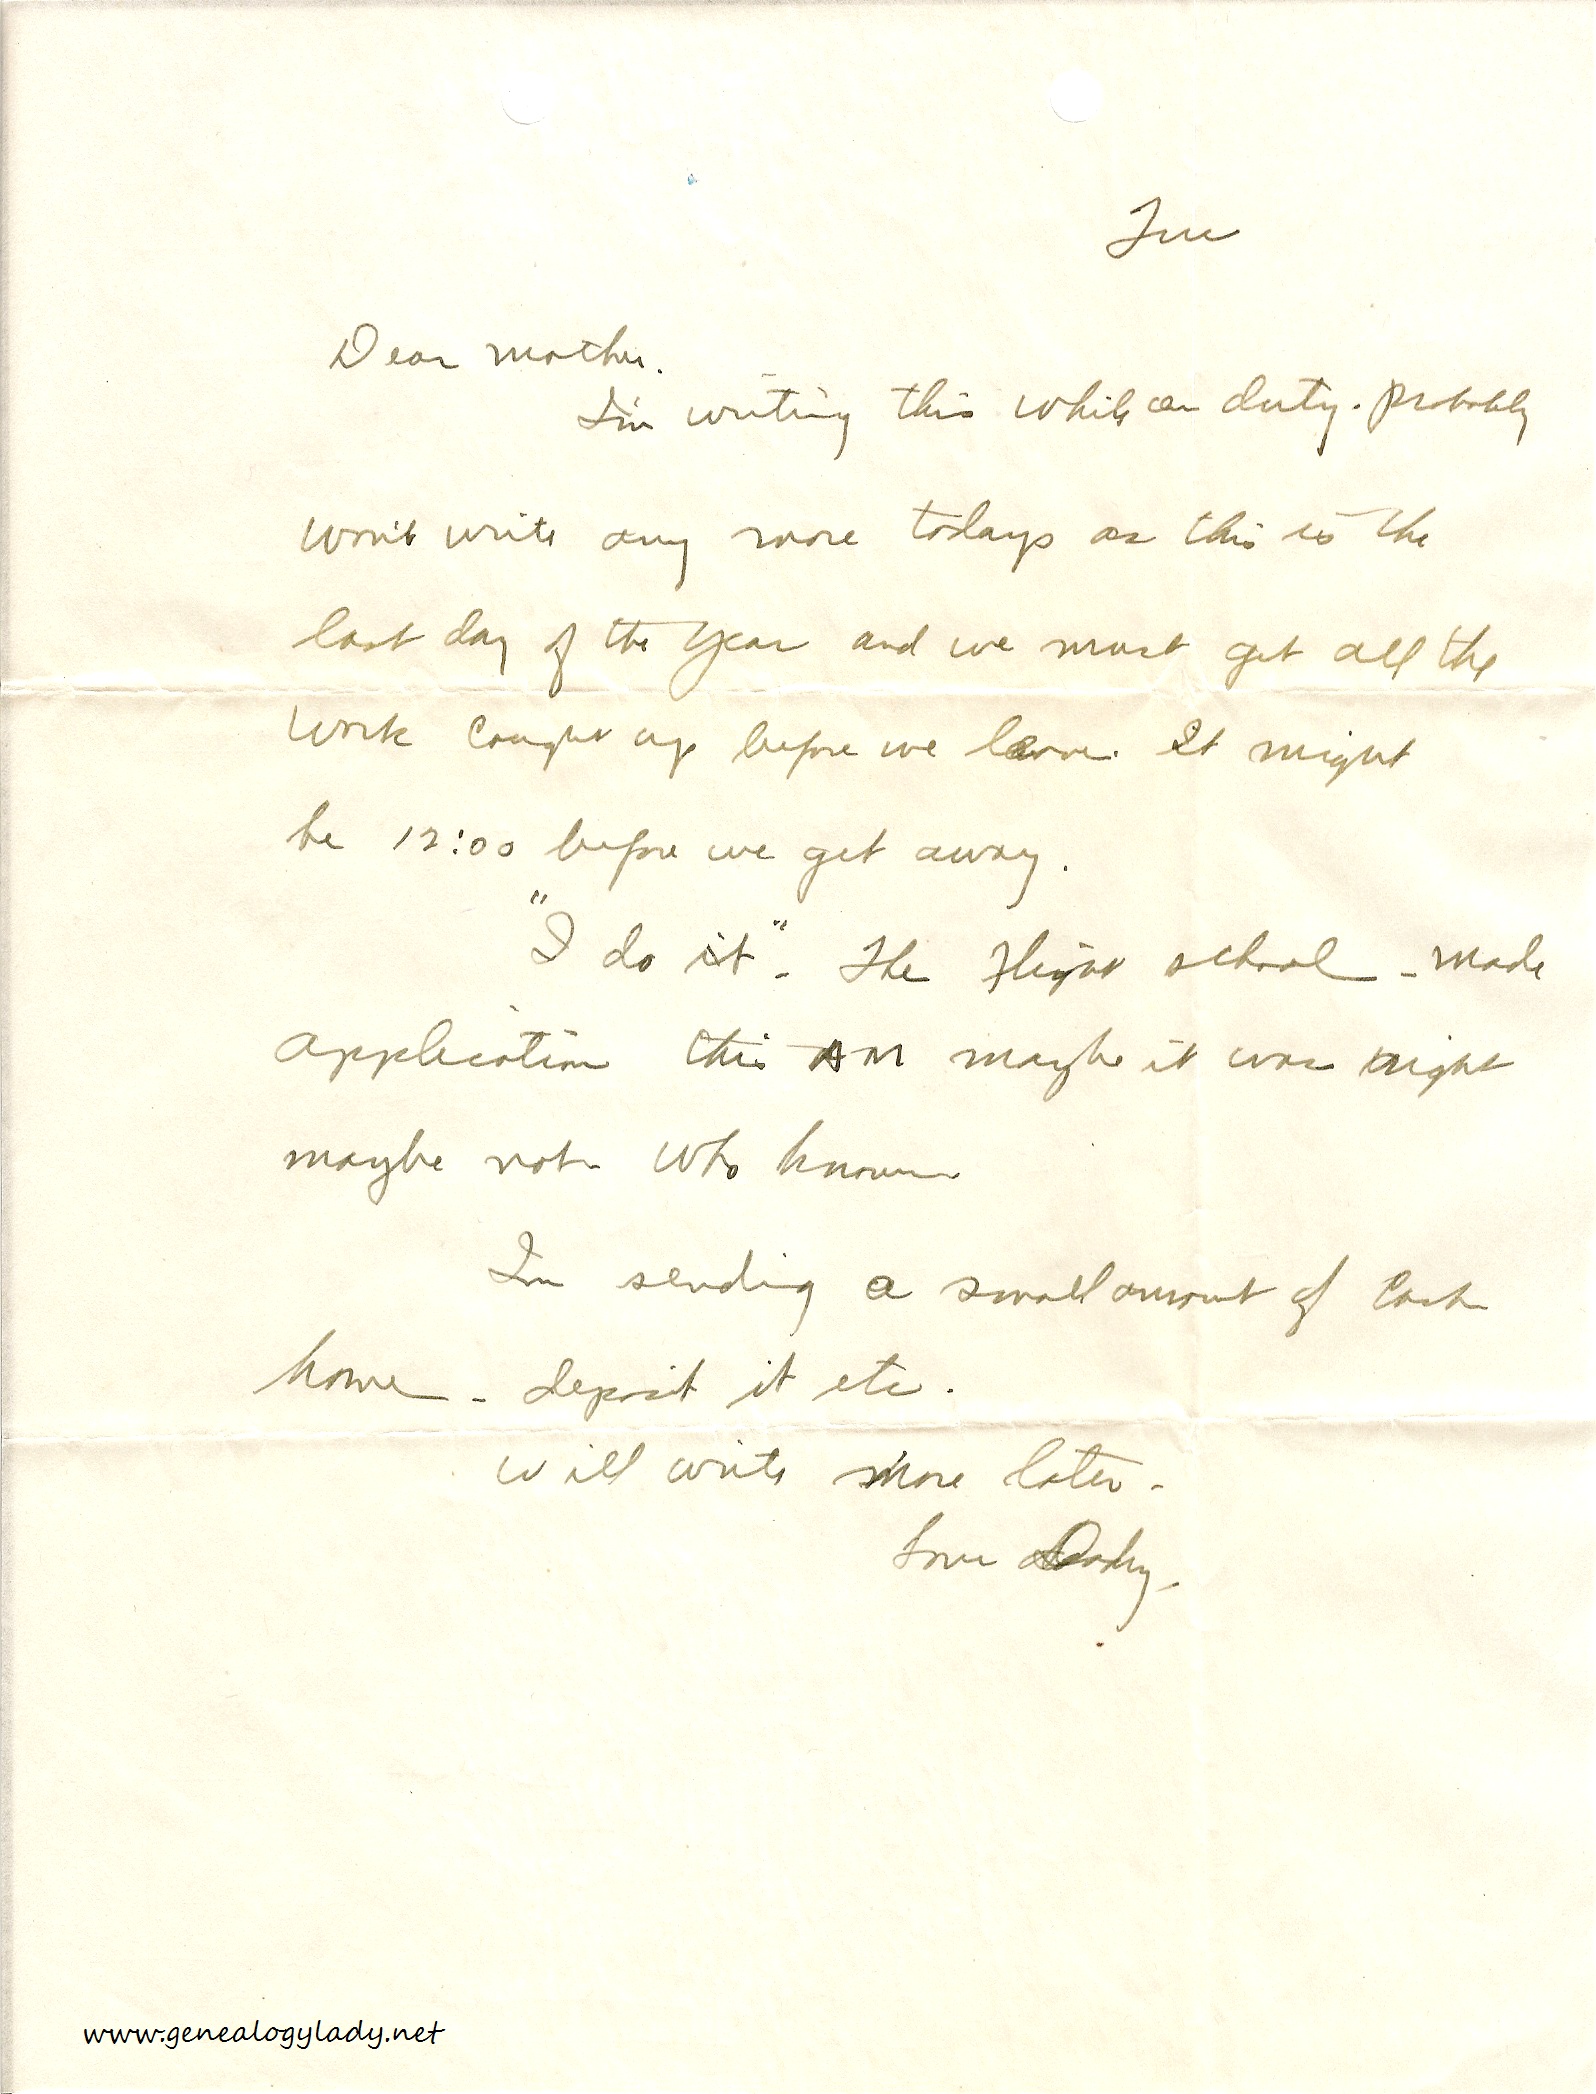 Tue
Dear Mother.
I'm writing this while on duty. Probably
won't write any more today as this is the
last day of the year and we must get all the
work caught up before we leave. It might
be 12:00 before we get away.
"I do it" - The flight school - made
application this AM maybe it was right
maybe not - who knows
Im sending a small amount of cash
home - deposit it etc.
Will write more later -
Love Dady.
www.genealogylady.net